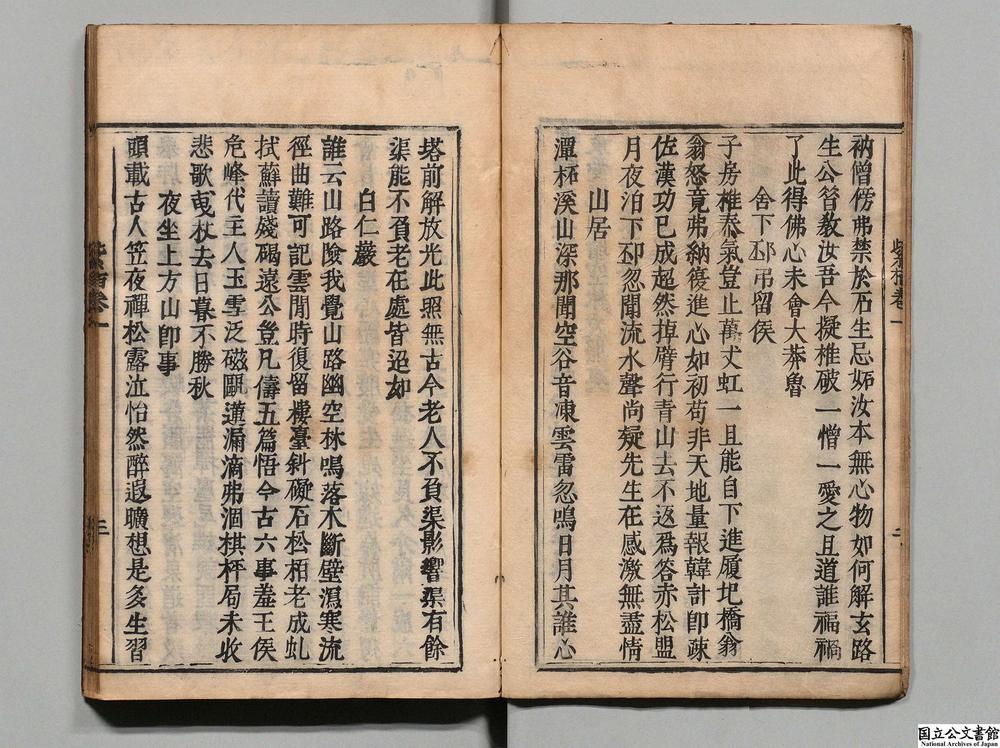 衲僧傍弗禁於石生忌妬汝本無心物如何解玄路
生公答敎汝吾今擬椎破一憎一愛之且道誰福禍
了此得佛心未會大莽魯
舍下邳弔留侯
子房椎秦氣豈止萬丈虹一旦能自下進履圯橋翁
翁怒竟弗納復進心如初苟非天地量報韓計卽疎
佐漢功已成超然掉臂行靑山去不返爲答赤松盟
月夜泊下邳忽聞流水聲尚疑先生在感激無盡情
山居
潭柘溪山深那聞空谷音凍雲雷忽鳴日月其誰心
紫柏卷一
二
塔前解放光此照無古今老人不負渠影響渠有餘
渠能不負老在處皆迢如
白仁巖
誰云山路險我覺山路幽空林鳴落木斷壁瀉寒流
徑曲難可記雲閒時復留樓臺斜礙石松栢老成虬
拭蘚讀殘碣遠公豈凡儔五篇悟今古六事羞王侯
危峰代主人玉雪泛磁甌蓮漏滴弗涸棋枰局未收
悲歌曵杖去日暮不勝秋
夜坐上方山卽事
頭載古人笠夜禪松露泣怡然醉遐曠想是多生習
卷一
三
國立公文書館
National Archives of Japan